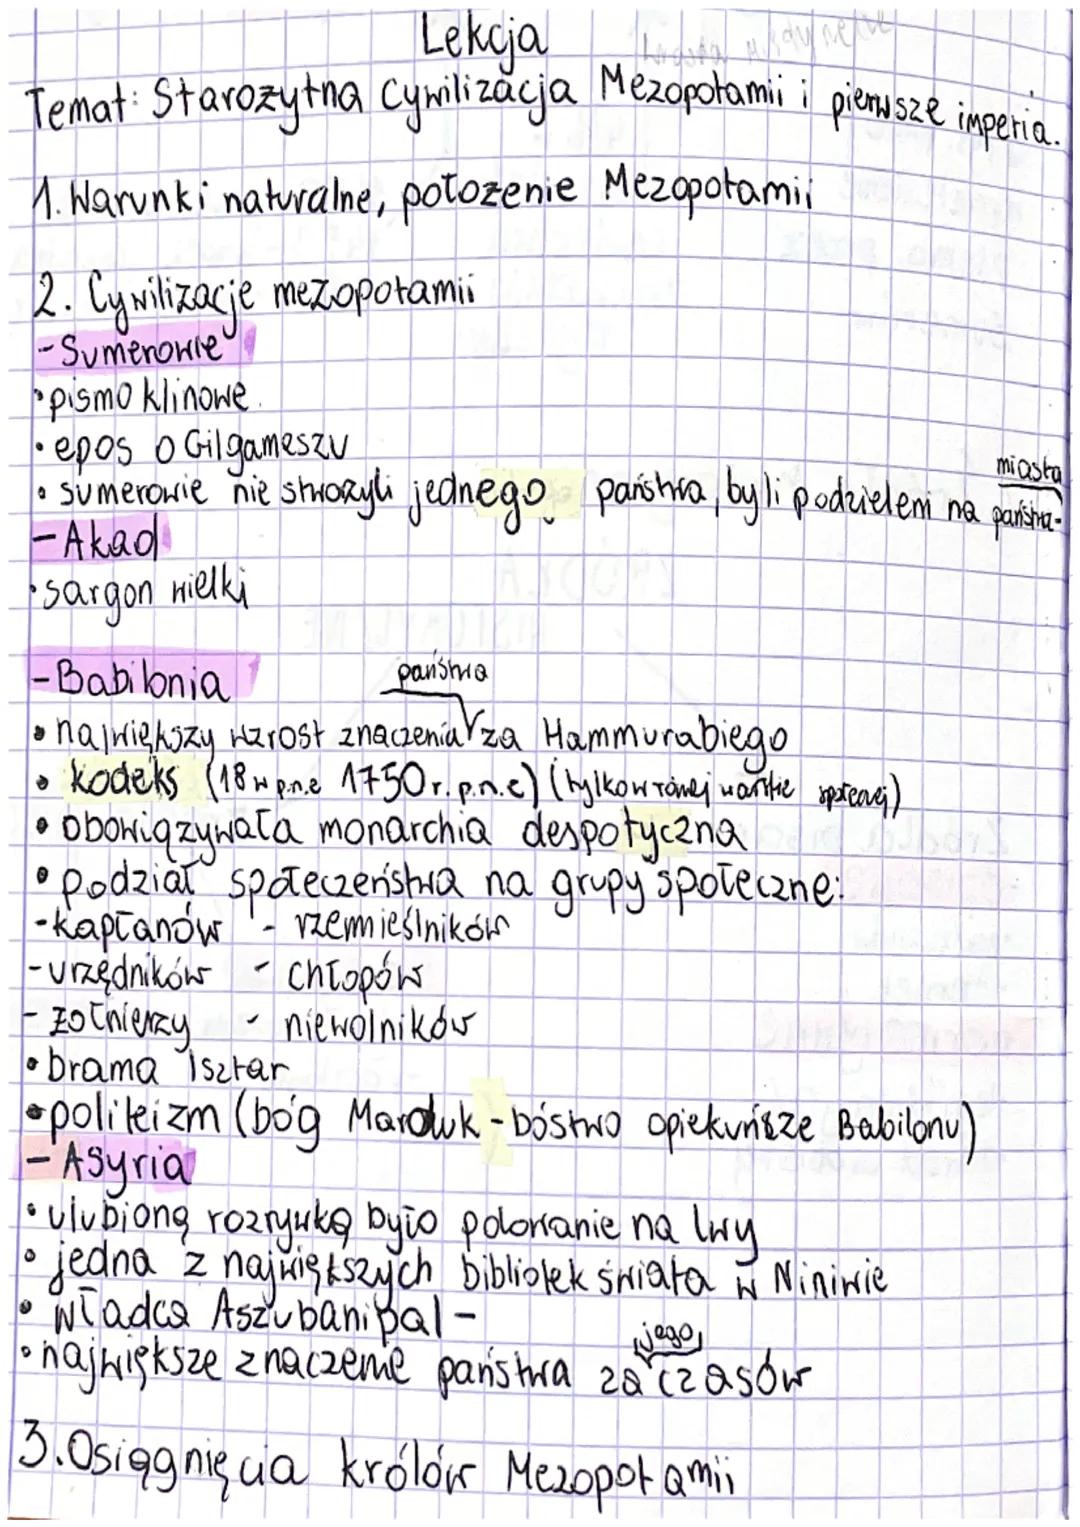 Lekcja
Temat: Starożytna Cywilizacja Mezopotamii i pierwsze imperia.
1. Warunki naturalne, położenie Mezopotamii
2. Cywilizacje mezopotamii
- Sumerowie
• pismo klinowe
• epos o Gilgameszu
• sumerowie nie stworzyli jednego państwa, byli podzieleni na miasta państwa-
- Akad
• sargon wielki
- Babilonia
• największy wzrost znaczenia państwa za Hammurabiego
• kodeks (18 w p.n.e 1750 r. p.n.e) (tylko w równej warstwie społecznej)
• obowiązywała monarchia despotyczna
• podział społeczeństwa na grupy społeczne:
- kapłanów - rzemieślników
- urzędników - chłopów
- żołnierzy - niewolników
• brama Isztar
• politeizm (bóg Marduk - bóstwo opiekuńsze Babilonu)
- Asyria
• ulubioną rozrywką było polowanie na lwy
• jedna z największych bibliotek świata w Niniwie
• władca Aszubanipal -
• największe znaczenie państwa za jego czasów
3. Osiągnięcia królów Mezopotamii